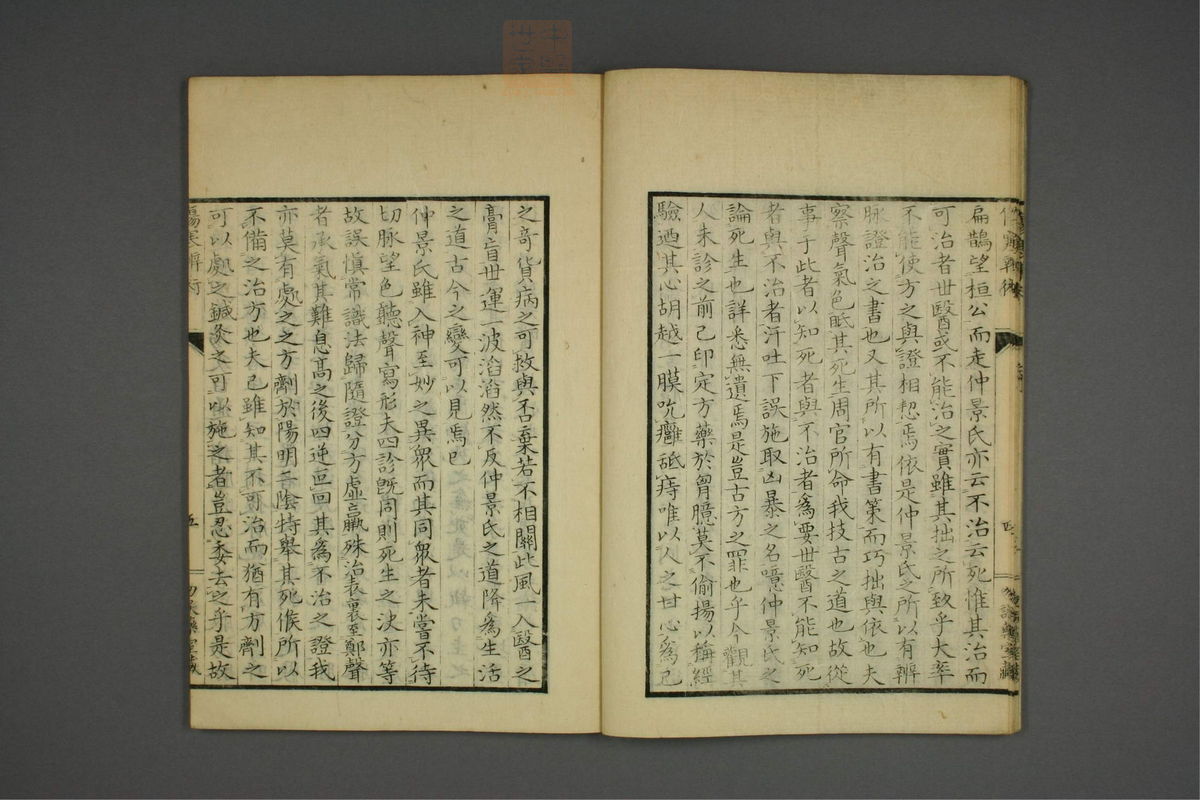 扁鵲望桓公而走仲景氏亦云不治云死惟其治而
可治者世醫或不能治之實雖其拙之所致乎大率
不能使方之與證相愜焉依是仲景氏之所以有辨
脉證治之書也又其所以有書第而巧拙與依也夫
察聲氣色眂其死生周官所命我技古之道也故從
事于此者以知死者與不治者爲要世醫不能知死
者與不治者汗吐下誤施取凶暴之名噫仲景氏之
論死生也詳悉無遺焉是豈古方之罪也乎今觀其
人未診之前已印定方藥於胷臆莫不偷揚以稱經
驗迺其心胡越一膜吮癰舐痔唯以人之甘心爲已
之奇貨病之可救與否棄若不相關此風一入醫之
膏盲世運一波滔滔然不反仲景氏之道降爲生活
之道古今之變可以見焉已
仲景氏雖入神至妙之異衆而其同衆者未嘗不待
切脉望色聽聲寫形夫四診旣同則死生之決亦等
故誤愼常識法歸隨證分方虛羸殊治表裏至鄭聲
者承氣其難息高之後四逆叵回其爲不治之證我
亦莫有處之之方劑於陽明三陰特舉其死候所以
不備之治方也夫已雖知其不可治而猶有方劑之
可以處之鍼灸之可以施之者豈忍委去之乎是故
五